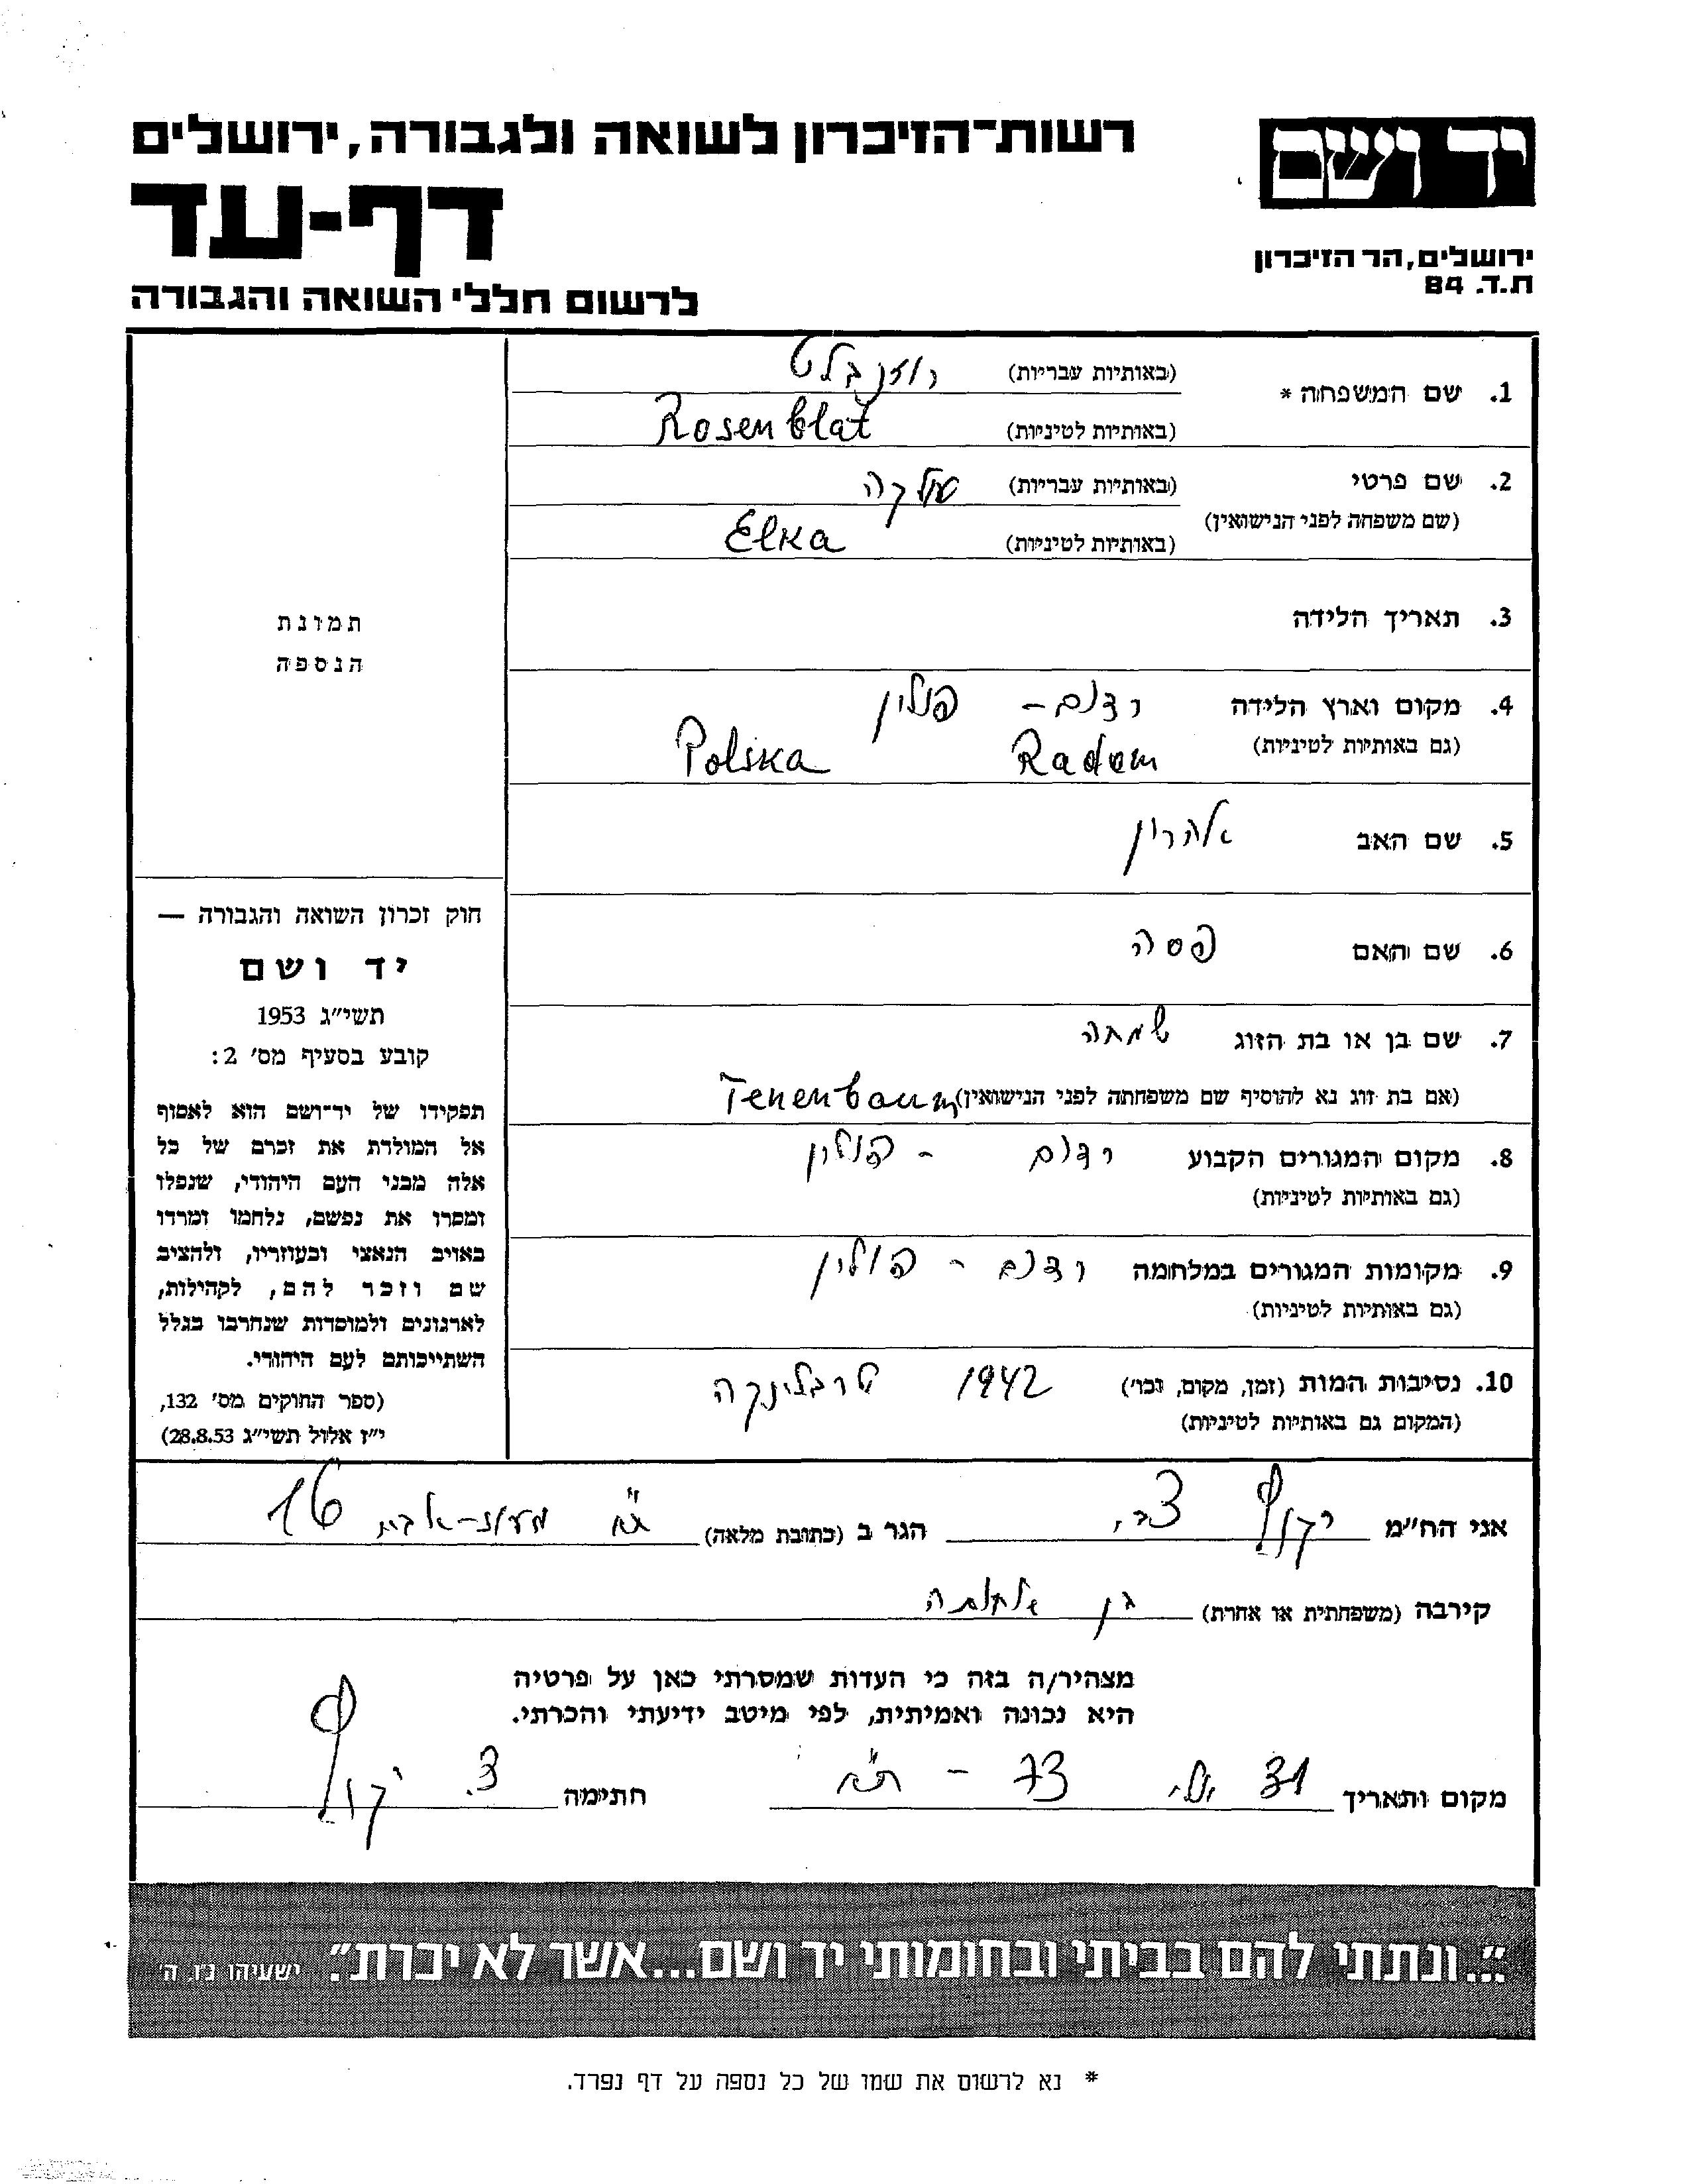 רשות־הזיכרון לשואה ולגבורה, ירושלים
יד ושם
דף-עד
ירושלים, הר הזיכרון
ת.ד. 84
לרשום חללי השואה והגבורה
1. שם המשפחה * (באותיות עבריות) רוזנבלט
(באותיות לטיניות) Rosenblat
2. שם פרטי (באותיות עבריות) עלקה
(שם משפחה לפני הנישואין)
(באותיות לטיניות) Elka
3. תאריך הלידה
4. מקום וארץ הלידה רדום - פולין
(גם באותיות לטיניות) Radom Polska
5. שם האב אהרון
6. שם האם פסה
7. שם בן או בת הזוג שמחה
(אם בת זוג נא להוסיף שם משפחתה לפני הנישואין) Tenenbaum
8. מקום המגורים הקבוע רדום - פולין
(גם באותיות לטיניות)
9. מקומות המגורים במלחמה רדום - פולין
(גם באותיות לטיניות)
10. נסיבות המות (זמן, מקום, וכו') 1942 טרבלינקה
(המקום גם באותיות לטיניות)
תמונת
הנספה
חוק זכרון השואה והגבורה —
יד ושם
תשי״ג 1953
קובע בסעיף מס' 2:
תפקידו של יד־ושם הוא לאסוף
אל המולדת את זכרם של כל
אלה מבני העם היהודי, שנפלו
ומסרו את נפשם, נלחמו ומרדו
באויב הנאצי ובעוזריו, ולהציב
שם וזכר להם, לקהילות,
לארגונים ולמוסדות שנחרבו בגלל
השתייכותם לעם היהודי.
(ספר החוקים מס' 132,
י״ז אלול תשי״ג 28.8.53)
אני הח״מ צבי הגר ב (כתובת מלאה) ת״א 16
קירבה (משפחתית או אחרת) בן
מצהיר/ה בזה כי העדות שמסרתי כאן על פרטיה
היא נכונה ואמיתית, לפי מיטב ידיעתי והכרתי.
מקום ותאריך 31 יולי 73 - ת״א חתימה צ.
״...ונתתי להם בביתי ובחומותי יד ושם...אשר לא יכרת״. ישעיהו נ״ו, ה'
* נא לרשום את שמו של כל נספה על דף נפרד.